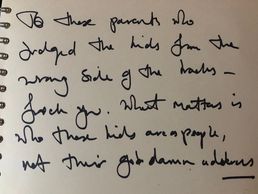 To those parents who
Judged the kids from the
wrong side of the tracks –
fuck you. What matters is
who these kids are as people,
not their god damn address